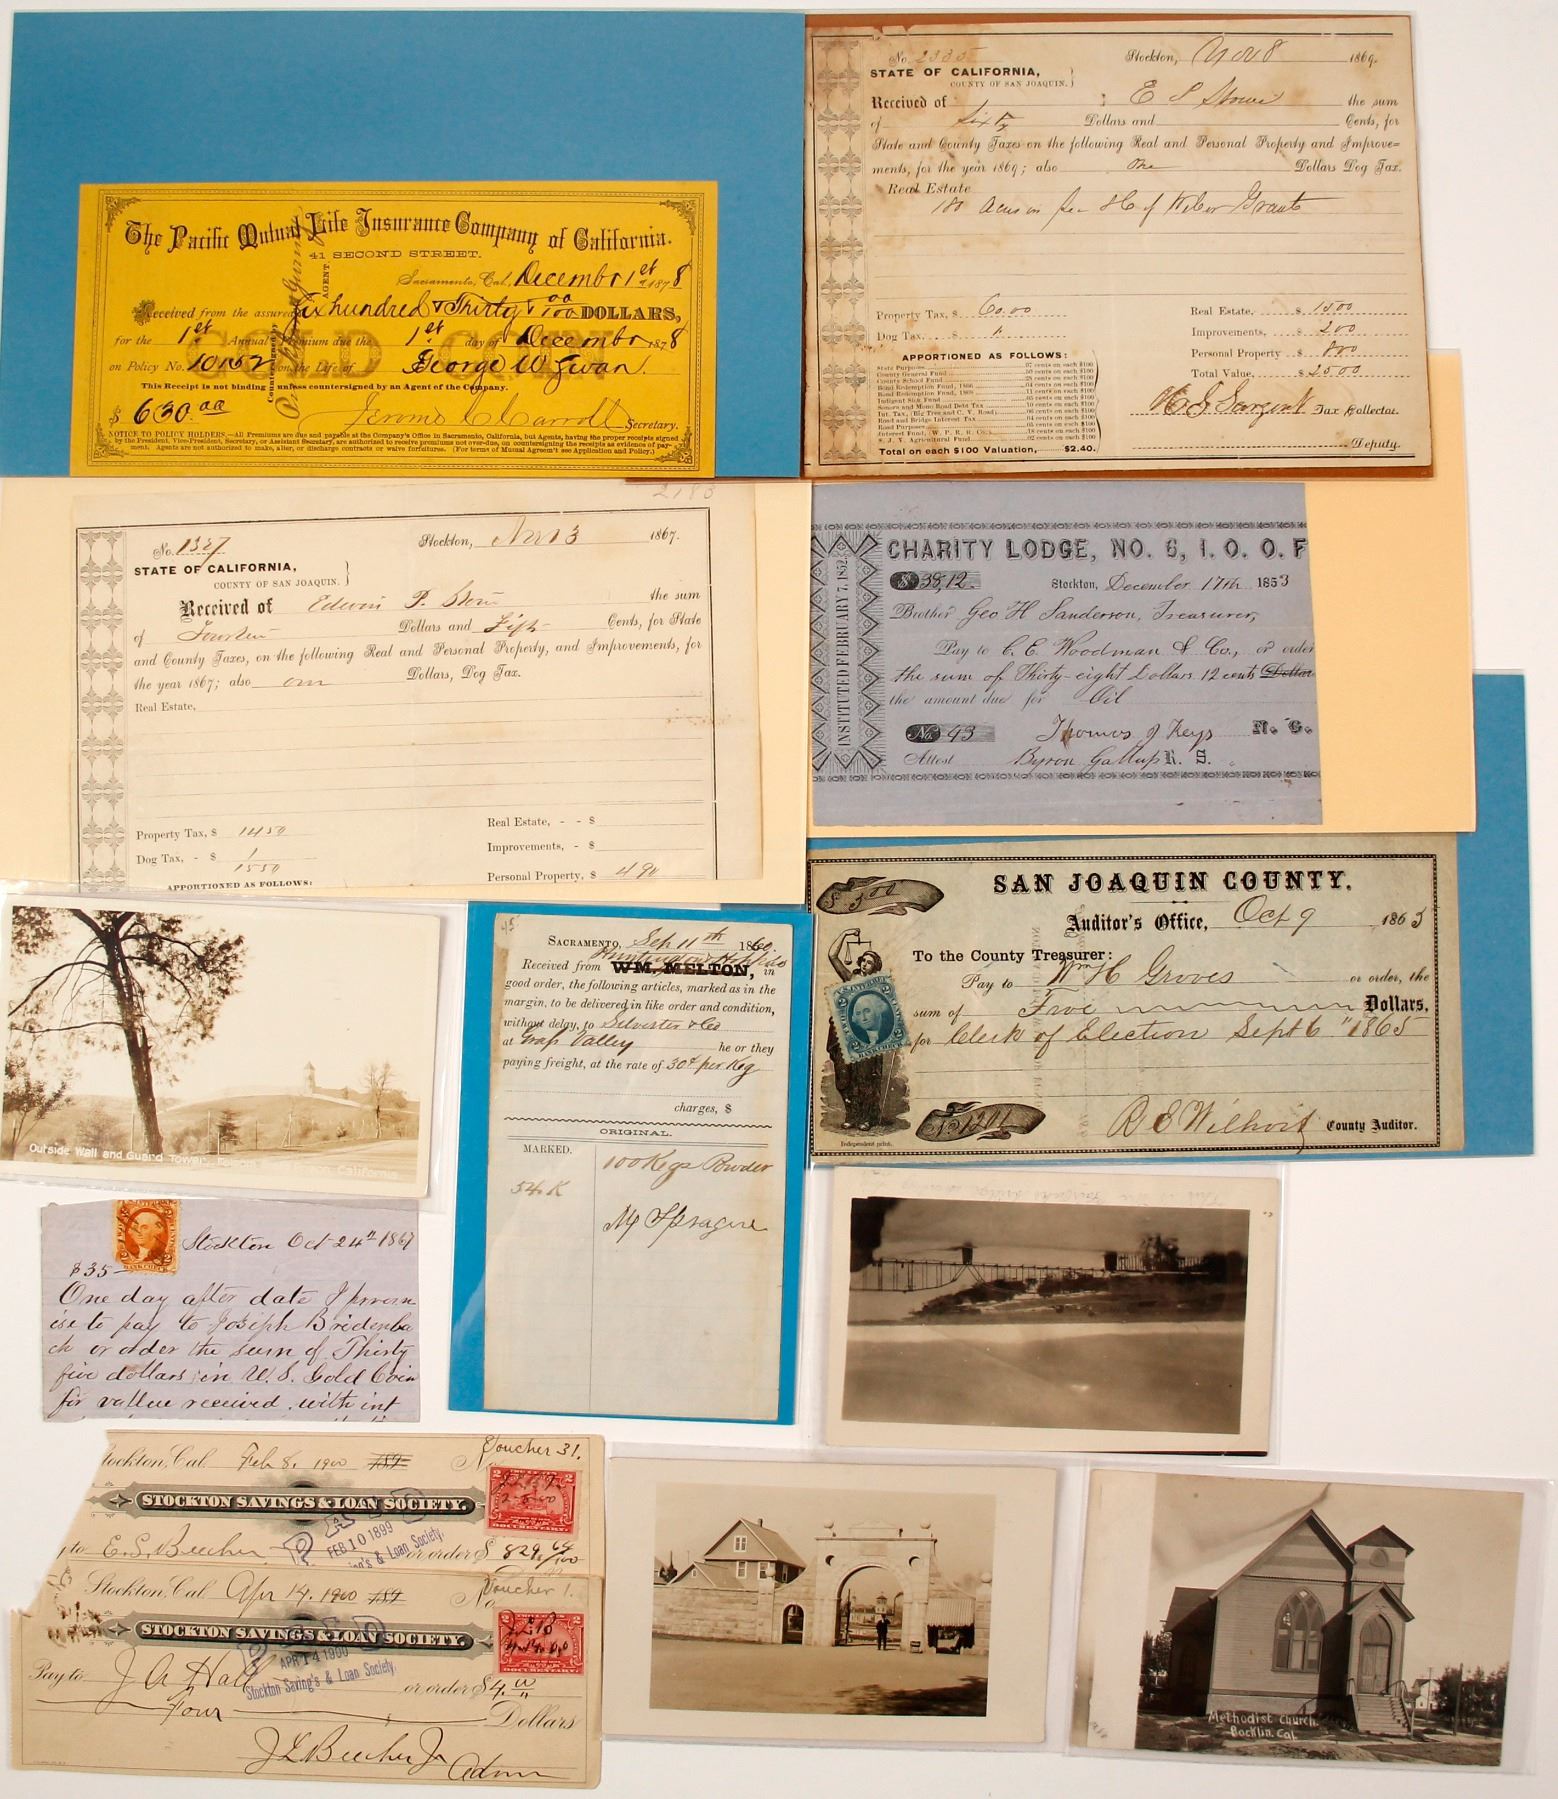 The Pacific Mutual Life Insurance Company of California.
41 SECOND STREET.
Sacramento, Cal., December 1st 1878
Received from the assured Six hundred & Thirty & 00/100 DOLLARS,
for the 1st Annual Premium due the 1st day of December 1878
on Policy No. on the Life of George W Swan.
GOLD COIN
Countersigned by
AGENT.
This Receipt is not binding unless countersigned by an Agent of the Company.
$ 630.00 Jerome C Carroll Secretary.
NOTICE TO POLICY HOLDERS.—All Premiums are due and payable at the Company's Office in Sacramento, California, but Agents, having the proper receipts signed
by the President, Vice-President, Secretary, or Assistant Secretary, are authorized to receive premiums not over-due, on countersigning the receipts as evidence of pay-
ment. Agents are not authorized to make, alter, or discharge contracts or waive forfeitures. (For terms of Mutual Agreem't see Application and Policy.)
No. 2335 Stockton, Nov 8 1869.
STATE OF CALIFORNIA,
COUNTY OF SAN JOAQUIN.
Received of E S Stowe the sum
of Sixty Dollars and Cents, for
State and County Taxes on the following Real and Personal Property and Improve=
ments, for the year 1869; also One Dollars Dog Tax.
Real Estate
180 Acres in of Weber Grant
Property Tax, $ 60.00
Dog Tax, $
Real Estate, $ 1500
Improvements, $ 200
Personal Property $ 800
Total Value, $ 2500
APPORTIONED AS FOLLOWS:
State Purposes 97 cents on each $100
County General Fund 50 cents on each $100
County School Fund cents on each $100
Bond Redemption Fund, 1866 04 cents on each $100
Bond Redemption Fund, cents on each $100
Indigent Sick Fund cents on each $100
Sonora and Mono Road Debt Tax cents on each $100
Int. Tax, (Big Tree and C. V. Road) cents on each $100
Road and Bridge Interest Tax cents on each $100
Road Purposes cents on each $100
Interest Fund, (W. P. R. R. Co.) cents on each $100
S. J. V. Agricultural Fund 02 cents on each $100
Total on each $100 Valuation, $2.40.
H S Sargent Tax Collector.
Deputy.
2183
No. 1327 Stockton, Nov 13 1867.
STATE OF CALIFORNIA,
COUNTY OF SAN JOAQUIN.
Received of Edwin P. Stowe the sum
of Fourteen Dollars and Fifty Cents, for State
and County Taxes, on the following Real and Personal Property, and Improvements, for
the year 1867; also one Dollars, Dog Tax.
Real Estate,
Property Tax, $ 1450
Dog Tax, - $ 1
1550
APPORTIONED AS FOLLOWS:
Real Estate, - - $
Improvements, - $
Personal Property, $ 490
INSTITUTED FEBRUARY 7, 1852.
CHARITY LODGE, NO. 6, I. O. O. F
$ 38,12. Stockton, December 17th 1853
Brother Geo H Sanderson, Treasurer,
Pay to C. E. Woodman & Co., or order
the sum of Thirty-eight Dollars 12 cents Dollar
the amount due for Oil
No. 43 Thomas J Keys N. G.
Attest Byron Gallup R. S.
$ 5.00
SAN JOAQUIN COUNTY.
Auditor's Office, Oct 9 1865
To the County Treasurer:
Pay to Wm H Groves or order, the
sum of Five Dollars,
for Clerk of Election Sept 6" 1865
U.S. INTER. REV.
TWO CENTS
BANK CHECK
No. 1201
R E Wilhoit County Auditor.
Independent print.
Outside Wall and Guard Tower, California
45
SACRAMENTO, Sep 11th 1860.
Received from WM. MELTON, in
Huntington Hopkins
good order, the following articles, marked as in the
margin, to be delivered in like order and condition,
without delay, to Silvester & Co
at Grass Valley he or they
paying freight, at the rate of 30¢ per Keg
charges, $
ORIGINAL.
MARKED.
100 Kegs Powder
54 K
M Sprague
BANK CHECK
Stockton Oct 24th 1867
$35
One day after date I prom
ise to pay to Joseph Bridenba
ch or order the sum of Thirty
five dollars in U. S. Gold Coin
for vallue received, with int
Stockton, Cal. Feb 8, 1900 189 No. Voucher 31.
STOCKTON SAVINGS & LOAN SOCIETY,
to E. S. Beecher or order $ 829 64/100
PAID
FEB 10 1899
ing's & Loan Society.
2 2
DOCUMENTARY.
Stockton, Cal. Apr 14, 1900 189 No. Voucher 1.
STOCKTON SAVINGS & LOAN SOCIETY.
PAID
APR 14 1900
Stockton Saving's & Loan Society.
2 2
DOCUMENTARY
Pay to J A Hall or order $ 4.00
Four Dollars
J L Beecher Jr
Admr
Methodist Church.
Rocklin. Cal.